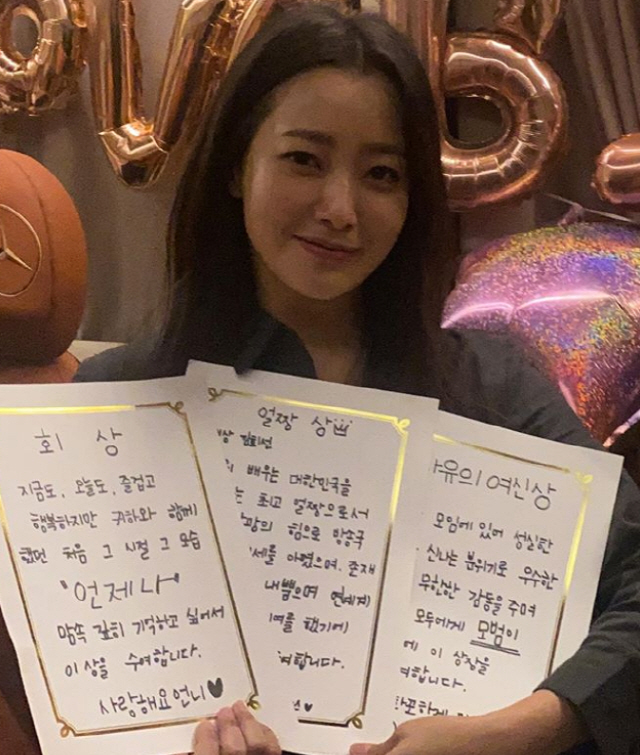 회 상
지금도, 오늘도, 즐겁고
행복하지만 귀하와 함께
했던 처음 그 시절 그 모습
"언제나"
맘속 깊히 기억하고 싶어서
이 상을 수여합니다.
사랑해요 언니♥
얼짱 상
배우는 대한민국을
최고 얼짱으로서
힘으로 방송국
세를 아렸으며, 존재
내뿜으며 연예계
여를 했기에
여합니다.
유의 여신상
모임에 있어 성실한
신나는 분위기로 우수한
무한한 감동을 주며
모두에게 모범이
에 이 상장을
여합니다.